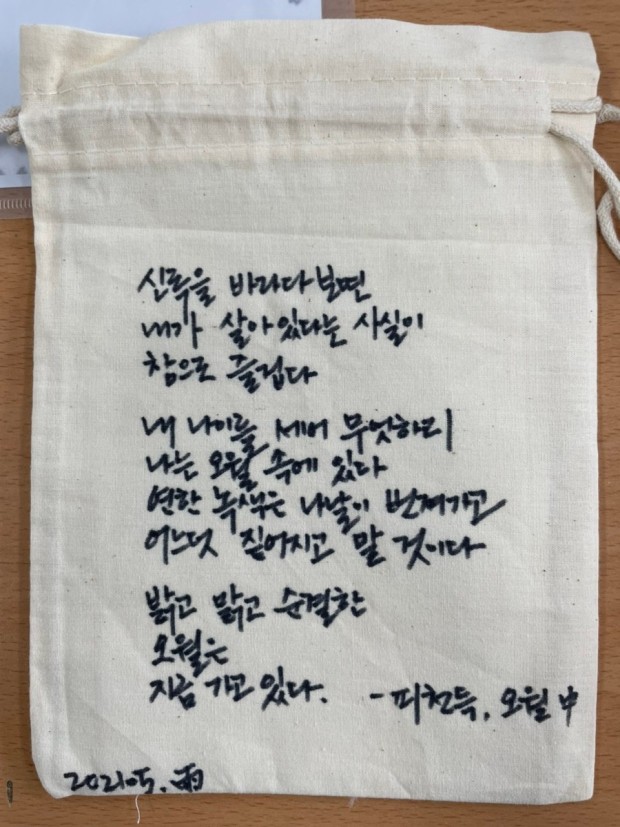 신록을 바라다보면
내가 살아있다는 사실이
참으로 즐겁다
내 나이를 세어 무엇하리
나는 오월 속에 있다
연한 녹색은 나날이 번져가고
어느덧 짙어지고 말 것이다
밝고 맑고 순결한
오월은
지금 가고 있다.
- 피천득, 오월 中
2021.05. 雨